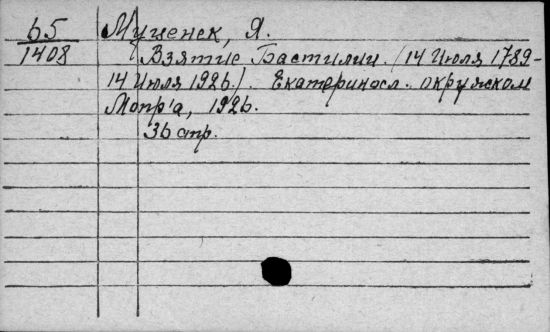 65 Муценек, Я.
1408 Взятие Бастилии. /14 Июля 1789-
14 Июля 1926./ Екатериносл. окружком
Мопр'а, 1926.
36 стр.